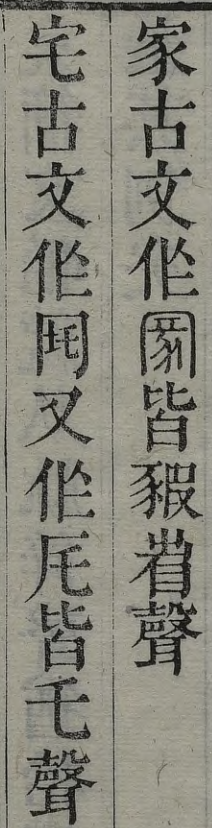 家古文作皆豭省聲
宅古文作又作厇皆乇聲